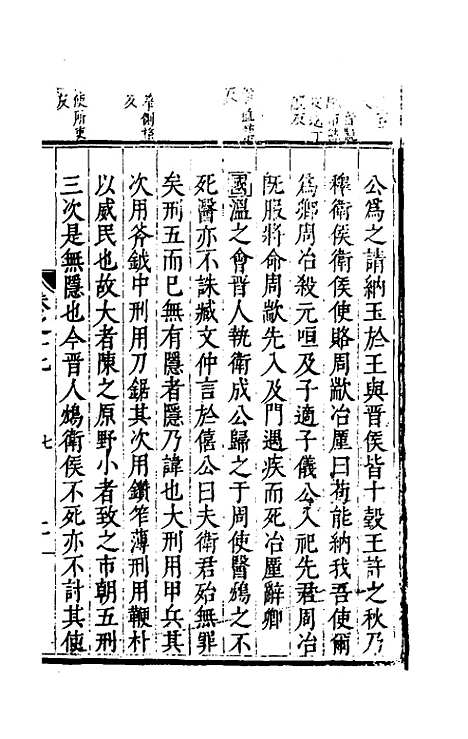 公爲之請納玉於王與晋侯皆十瑴王許之秋乃
釋衛侯衛侯使賂周歂冶廑曰苟能納我吾使爾
爲卿周冶殺元咺及子適子儀公入祀先君周冶
旣服將命周歂先入及門遇疾而死冶廑辭卿
國溫之會晋人執衛成公歸之于周使醫鴆之不
死醫亦不誅臧文仲言於僖公曰夫衛君殆無罪
矣刑五而已無有隱者隱乃諱也大刑用甲兵其
次用斧鉞中刑用刀鋸其次用鑽笮薄刑用鞭朴
以威民也故大者陳之原野小者致之市朝五刑
三次是無隱也今晋人鴆衛侯不死亦不計其使
七